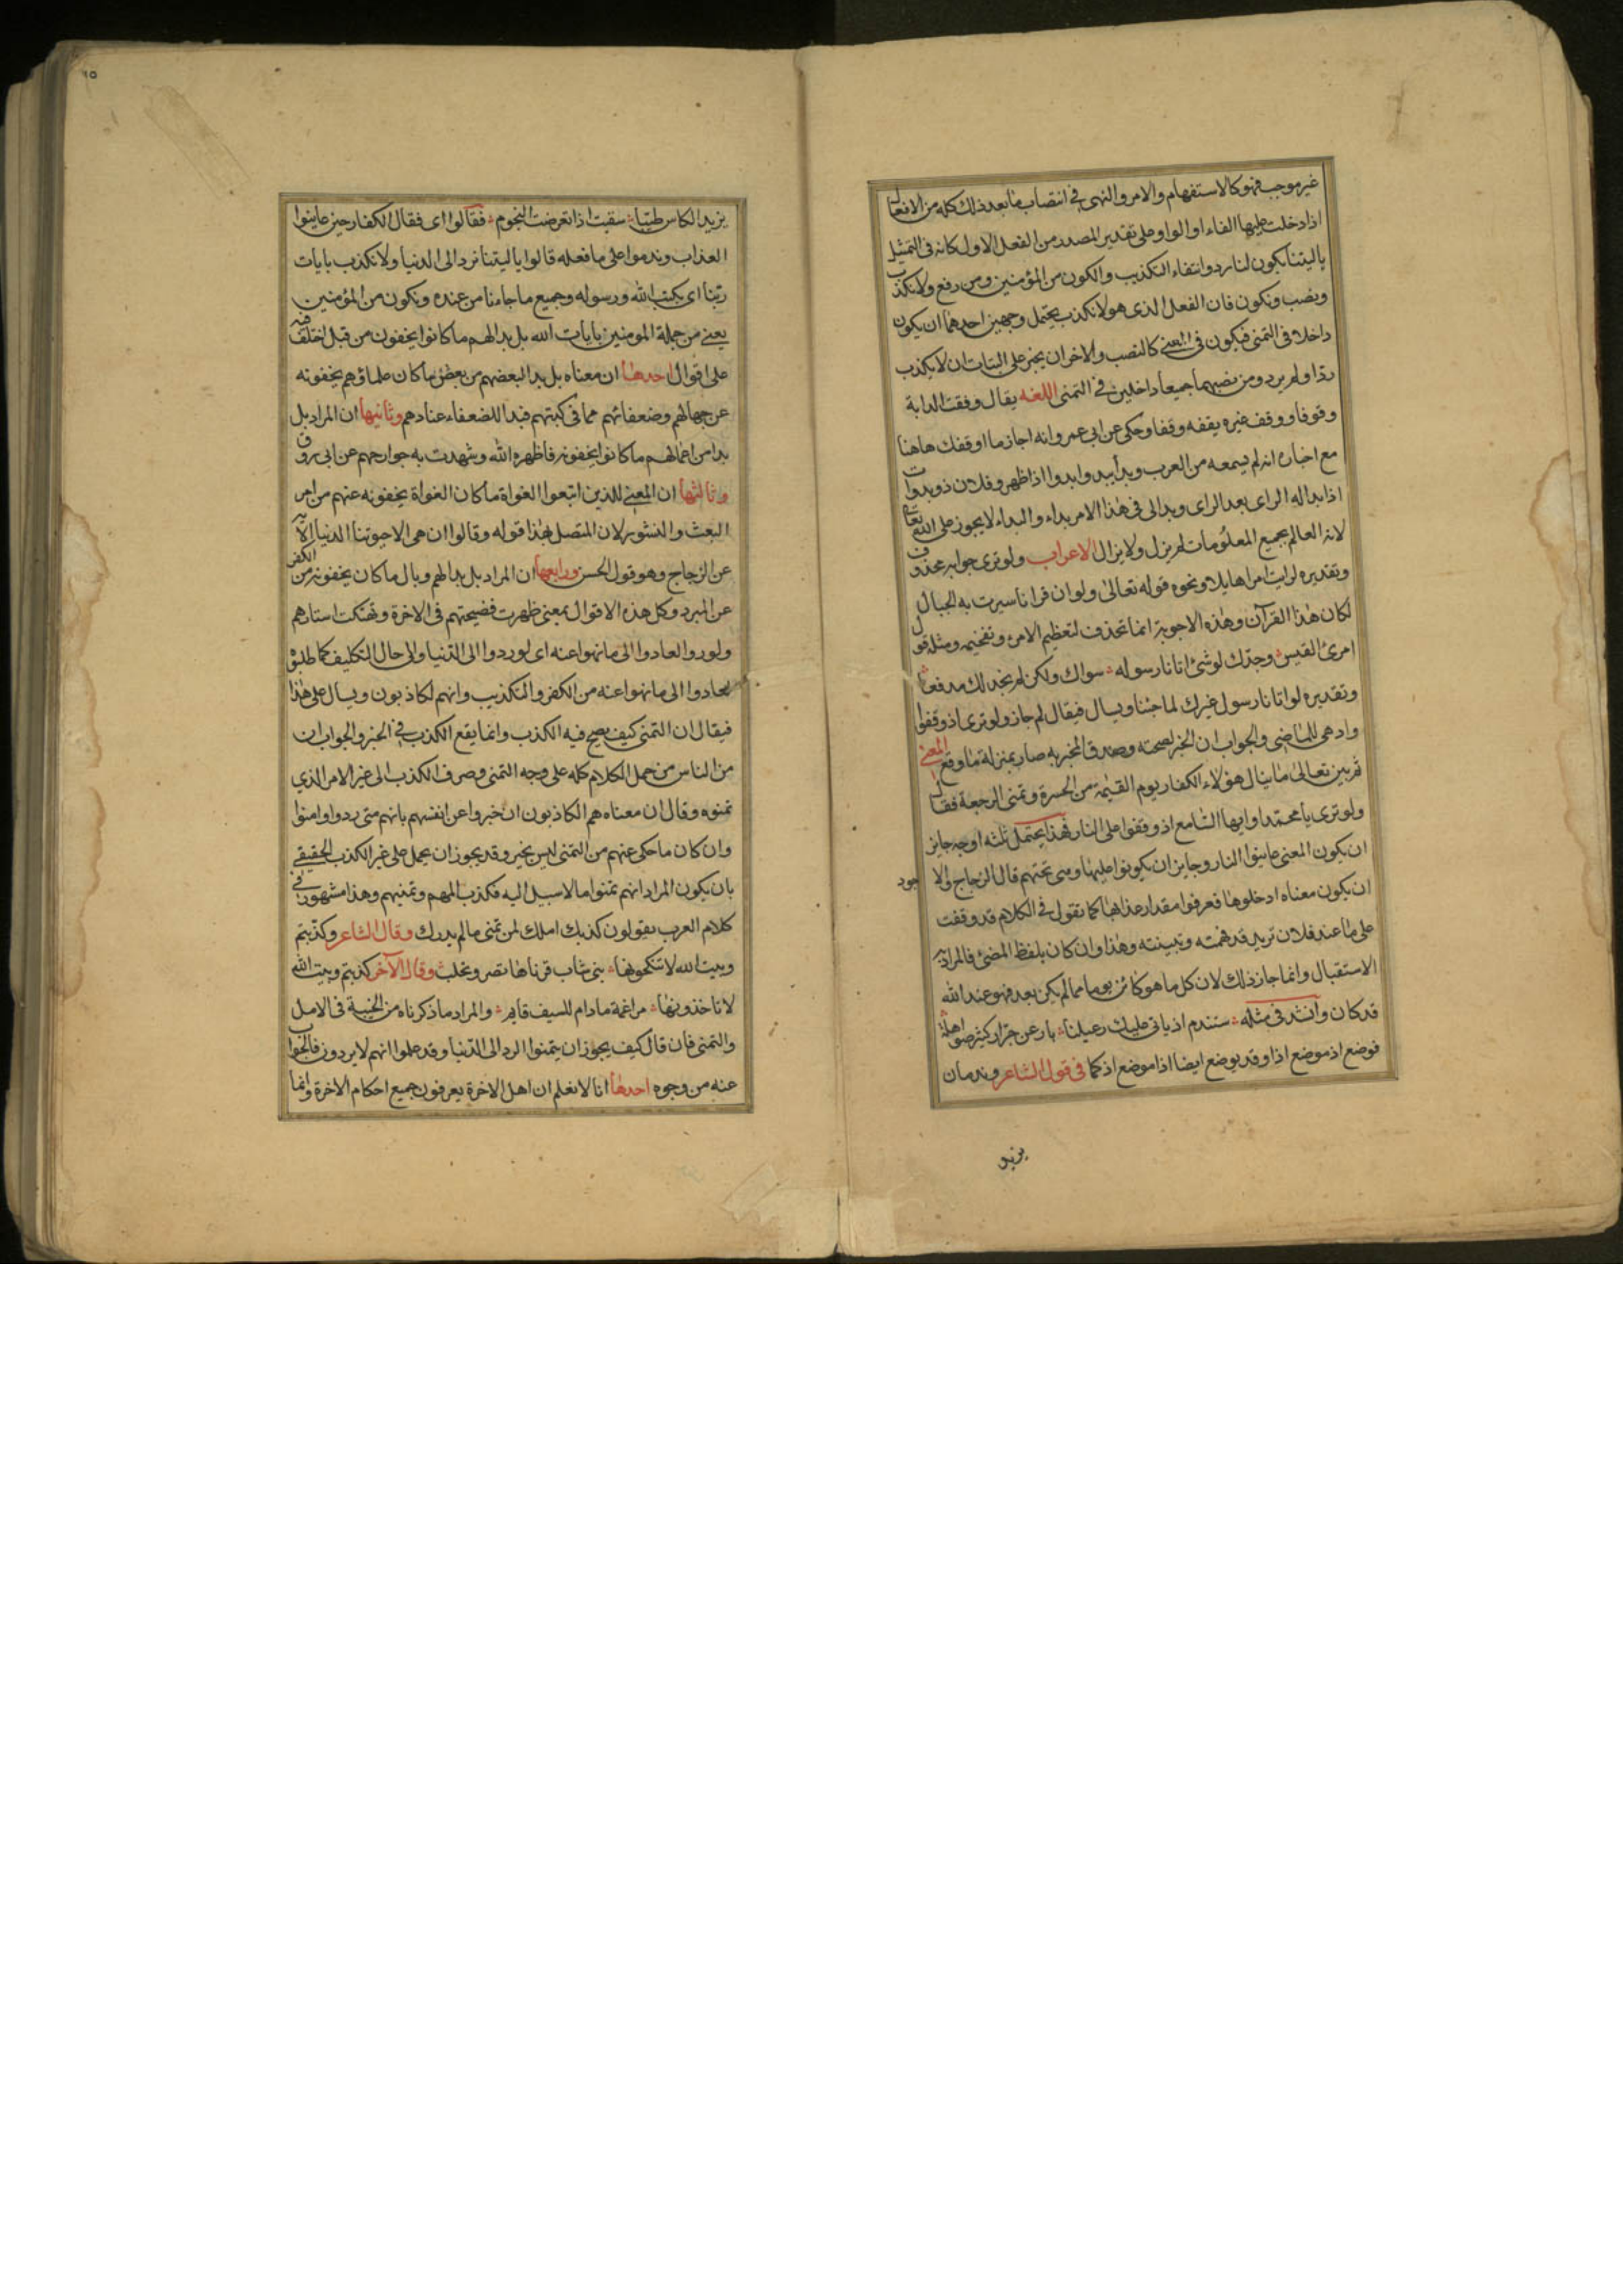 غير موجب فهو كالاستفهام والامر والنهى في انتصاب ما بعد ذلك كله من الافعال
اذا دخلت عليها الفاء او الواو على تقدير المصدر من الفعل الاول كانه فى التمثيل
ياليتنا يكون لنا رد وانتفاء التكذيب والكون من المؤمنين ومن رفع ولا نكذب
ونصب ونكون فان الفعل الذى هو لا نكذب يحتمل وجهين احدهما ان يكون
داخلا فى التمنى فيكون فى المعنى كالنصب والاخر ان يخبر على البتات ان لا يكذب
ردا ولم يرد ومن نصبهما جميعا داخلين في التمنى اللغه يقال وقفت الدابة
وقوفا ووقف غيره يقفه وقفا وحكى عن ابى عمرو انه اجاز ما اوقفك هاهنا
مع اخباره انه لم يسمعه من العرب وبدا يبدو ابدوا اذا ظهر وفلان ذو بدوات
اذا بدا له الراى بعد الراى وبدا لى فى هذا الامر بداء والبداء لا يجوز على الله تعا
لانه العالم بجميع المعلومات لم يزل ولا يزال الاعراب ولو ترى جوابه محذوف
وتقديره لرايت امرا هايلا ونحوه قوله تعالى ولو ان قرانا سيرت به الجبال
لكان هذا القرآن وهذه الاجوبة انما تحذف لتعظيم الامر وتفخيمه ومثله قول
امرئ القيس وجدك لو شئ اتانا رسوله سواك ولكن لم نجد لك مدفعا
وتقديره لو اتانا رسول غيرك لما جئنا ويسال فيقال لم جاز ولو ترى اذ وقفوا
واذ هى للماضى والجواب ان الخبر لصحته وصدق المخبر به صار بمنزلة ما وقع المعنى
ثم بين تعالى ما ينال هؤلاء الكفار يوم القيمة من الحسرة وتمنى الرجعة فقال
ولو ترى يا محمد او ايها السامع اذ وقفوا على النار فهذا يحتمل ثلثه اوجه جايز
ان يكون المعنى عاينوا النار وجايز ان يكونوا عليها وهى تحتهم قال الزجاج والاجود
ان يكون معناه ادخلوها فعرفوا مقدار عذابها كما تقول في الكلام قد وقفت
على ما عند فلان تريد قد فهمته وتبينته وهذا وان كان بلفظ المضئ فالمراد به
الاستقبال وانما جاز ذلك لان كل ما هو كائن يوما مما لم يكن بعد فهو عند الله
قد كان وانشد فى مثله ستندم اذ ياتى عليك رعيلنا بارعن جرار كثير صواهله
فوضع اذ موضع اذا وقد يوضع ايضا اذا موضع اذ كما فى قول الشاعر وندمان
يزيد
١٥
يزيد الكاس طيبا سقيت اذا تعرضت النجوم فقالوا اى فقال الكفار حين عاينوا
العذاب وندموا على ما فعله قالوا ياليتنا نرد الى الدنيا ولا نكذب بايات
ربنا اى بكتب الله ورسوله وجميع ما جاءنا من عنده ونكون من المؤمنين
يعنى من جملة المومنين بايات الله بل بدا لهم ما كانوا يخفون من قبل اختلف فيه
على اقوال احدها ان معناه بل بدا لبعضهم من بعض ما كان علماؤهم يخفونه
عن جهالهم وضعفائهم مما فى كبتهم فبدا للضعفاء عنادهم وثانيها ان المراد بل
بدا من اعمالهم ما كانوا يخفونه فاظهره الله وشهدت به جوارحهم عن ابى روق
وثالثها ان المعنى للذين اتبعوا الغواة ما كان الغواة يخفونه عنهم من امر
البعث والنشور لان المتصل بهذا قوله وقالوا ان هى الا حيوتنا الدنيا الاية
عن الزجاج وهو قول الحسن ورابعها ان المراد بل بدا لهم وبال ما كان يخفونه من الكفر
عن المبرد وكل هذه الاقوال بمعنى ظهرت فضيحتهم فى الاخرة وتهتكت استارهم
ولو ردوا لعادوا الى ما نهوا عنه اى لو ردوا الى الدنيا والى حال التكليف كما طلبوه
لعادوا الى ما نهوا عنه من الكفر والتكذيب وانهم لكاذبون ويسال على هذا
فيقال ان التمنى كيف يصح فيه الكذب وانما يقع الكذب في الخبر والجواب ان
من الناس من حمل الكلام كله على وجه التمنى وصرف الكذب الى غير الامر الذي
تمنوه وقال ان معناه هم الكاذبون ان خبروا عن انفسهم بانهم متى ردوا وامنوا
وان كان ما حكى عنهم من التمنى ليس بخبر وقد يجوز ان يحمل على غير الكذب الحقيقي
بان يكون المراد انهم تمنوا ما لا سبيل اليه فكذب املهم وتمنيهم وهذا مشهور في
كلام العرب يقولون كذبك املك لمن تمنى ما لم يدرك وقال الشاعر وكذبتم
وبيت الله لا تنكحونها بنى شاب قرناها تصر وتحلب وقال الآخر كذبتم وبيت الله
لا تاخذونها مراغمة مادام للسيف قايم والمراد ما ذكرناه من الخيبة فى الامل
والتمنى فان قال كيف يجوز ان يتمنوا الرد الى الدنيا وقد علموا انهم لا يردون فالجواب
عنه من وجوه احدها انا لا نعلم ان اهل الاخرة يعرفون جميع احكام الاخرة وانما